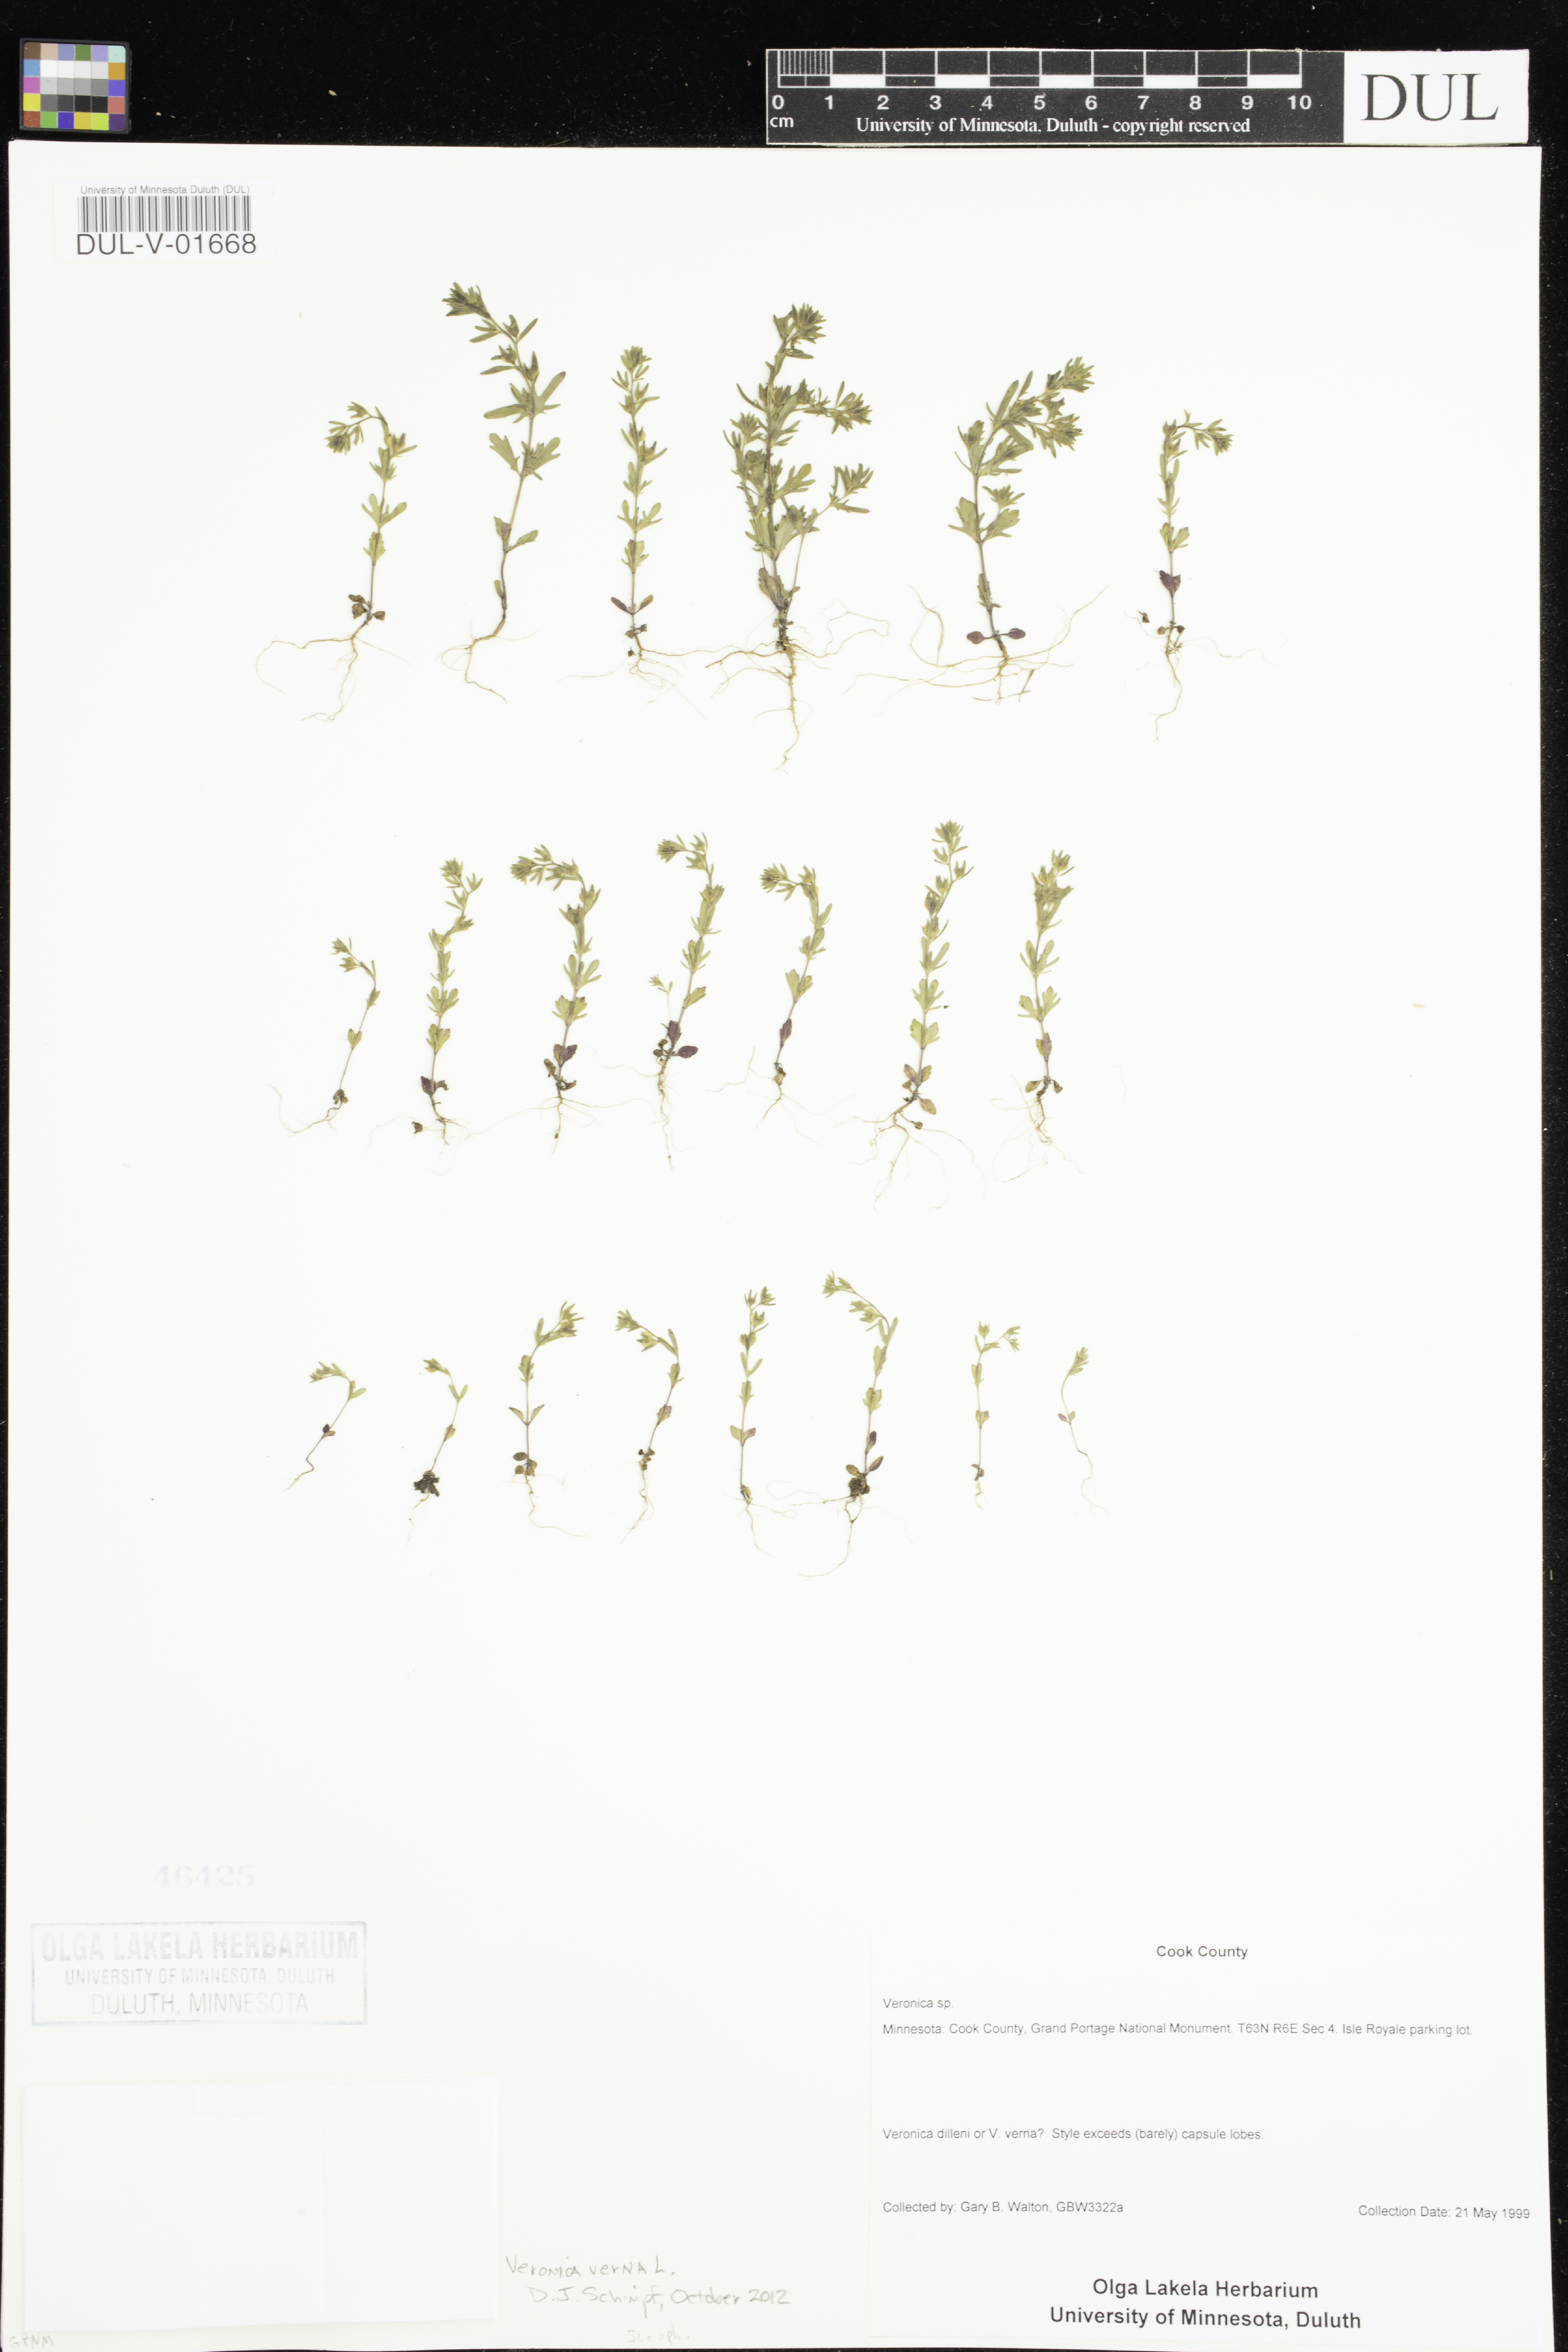 0 1 2 3 4 5 6 7 8 9 10
cm
University of Minnesota, Duluth - copyright reserved
DUL
University of Minnesota Duluth (DUL)
DUL-V-01668
46425
OLGA LAKELA HERBARIUM
UNIVERSITY OF MINNESOTA, DULUTH
DULUTH, MINNESOTA
Cook County
Veronica sp.
Minnesota: Cook County, Grand Portage National Monument. T63N R6E Sec 4. Isle Royale parking lot.
Veronica dilleni or V. verna? Style exceeds (barely) capsule lobes.
Collected by: Gary B. Walton, GBW3322a
Collection Date: 21 May 1999
Olga Lakela Herbarium
University of Minnesota, Duluth
Veronica verna L.
D. J. Schimpf, October 2012
Scroph.
GPNM